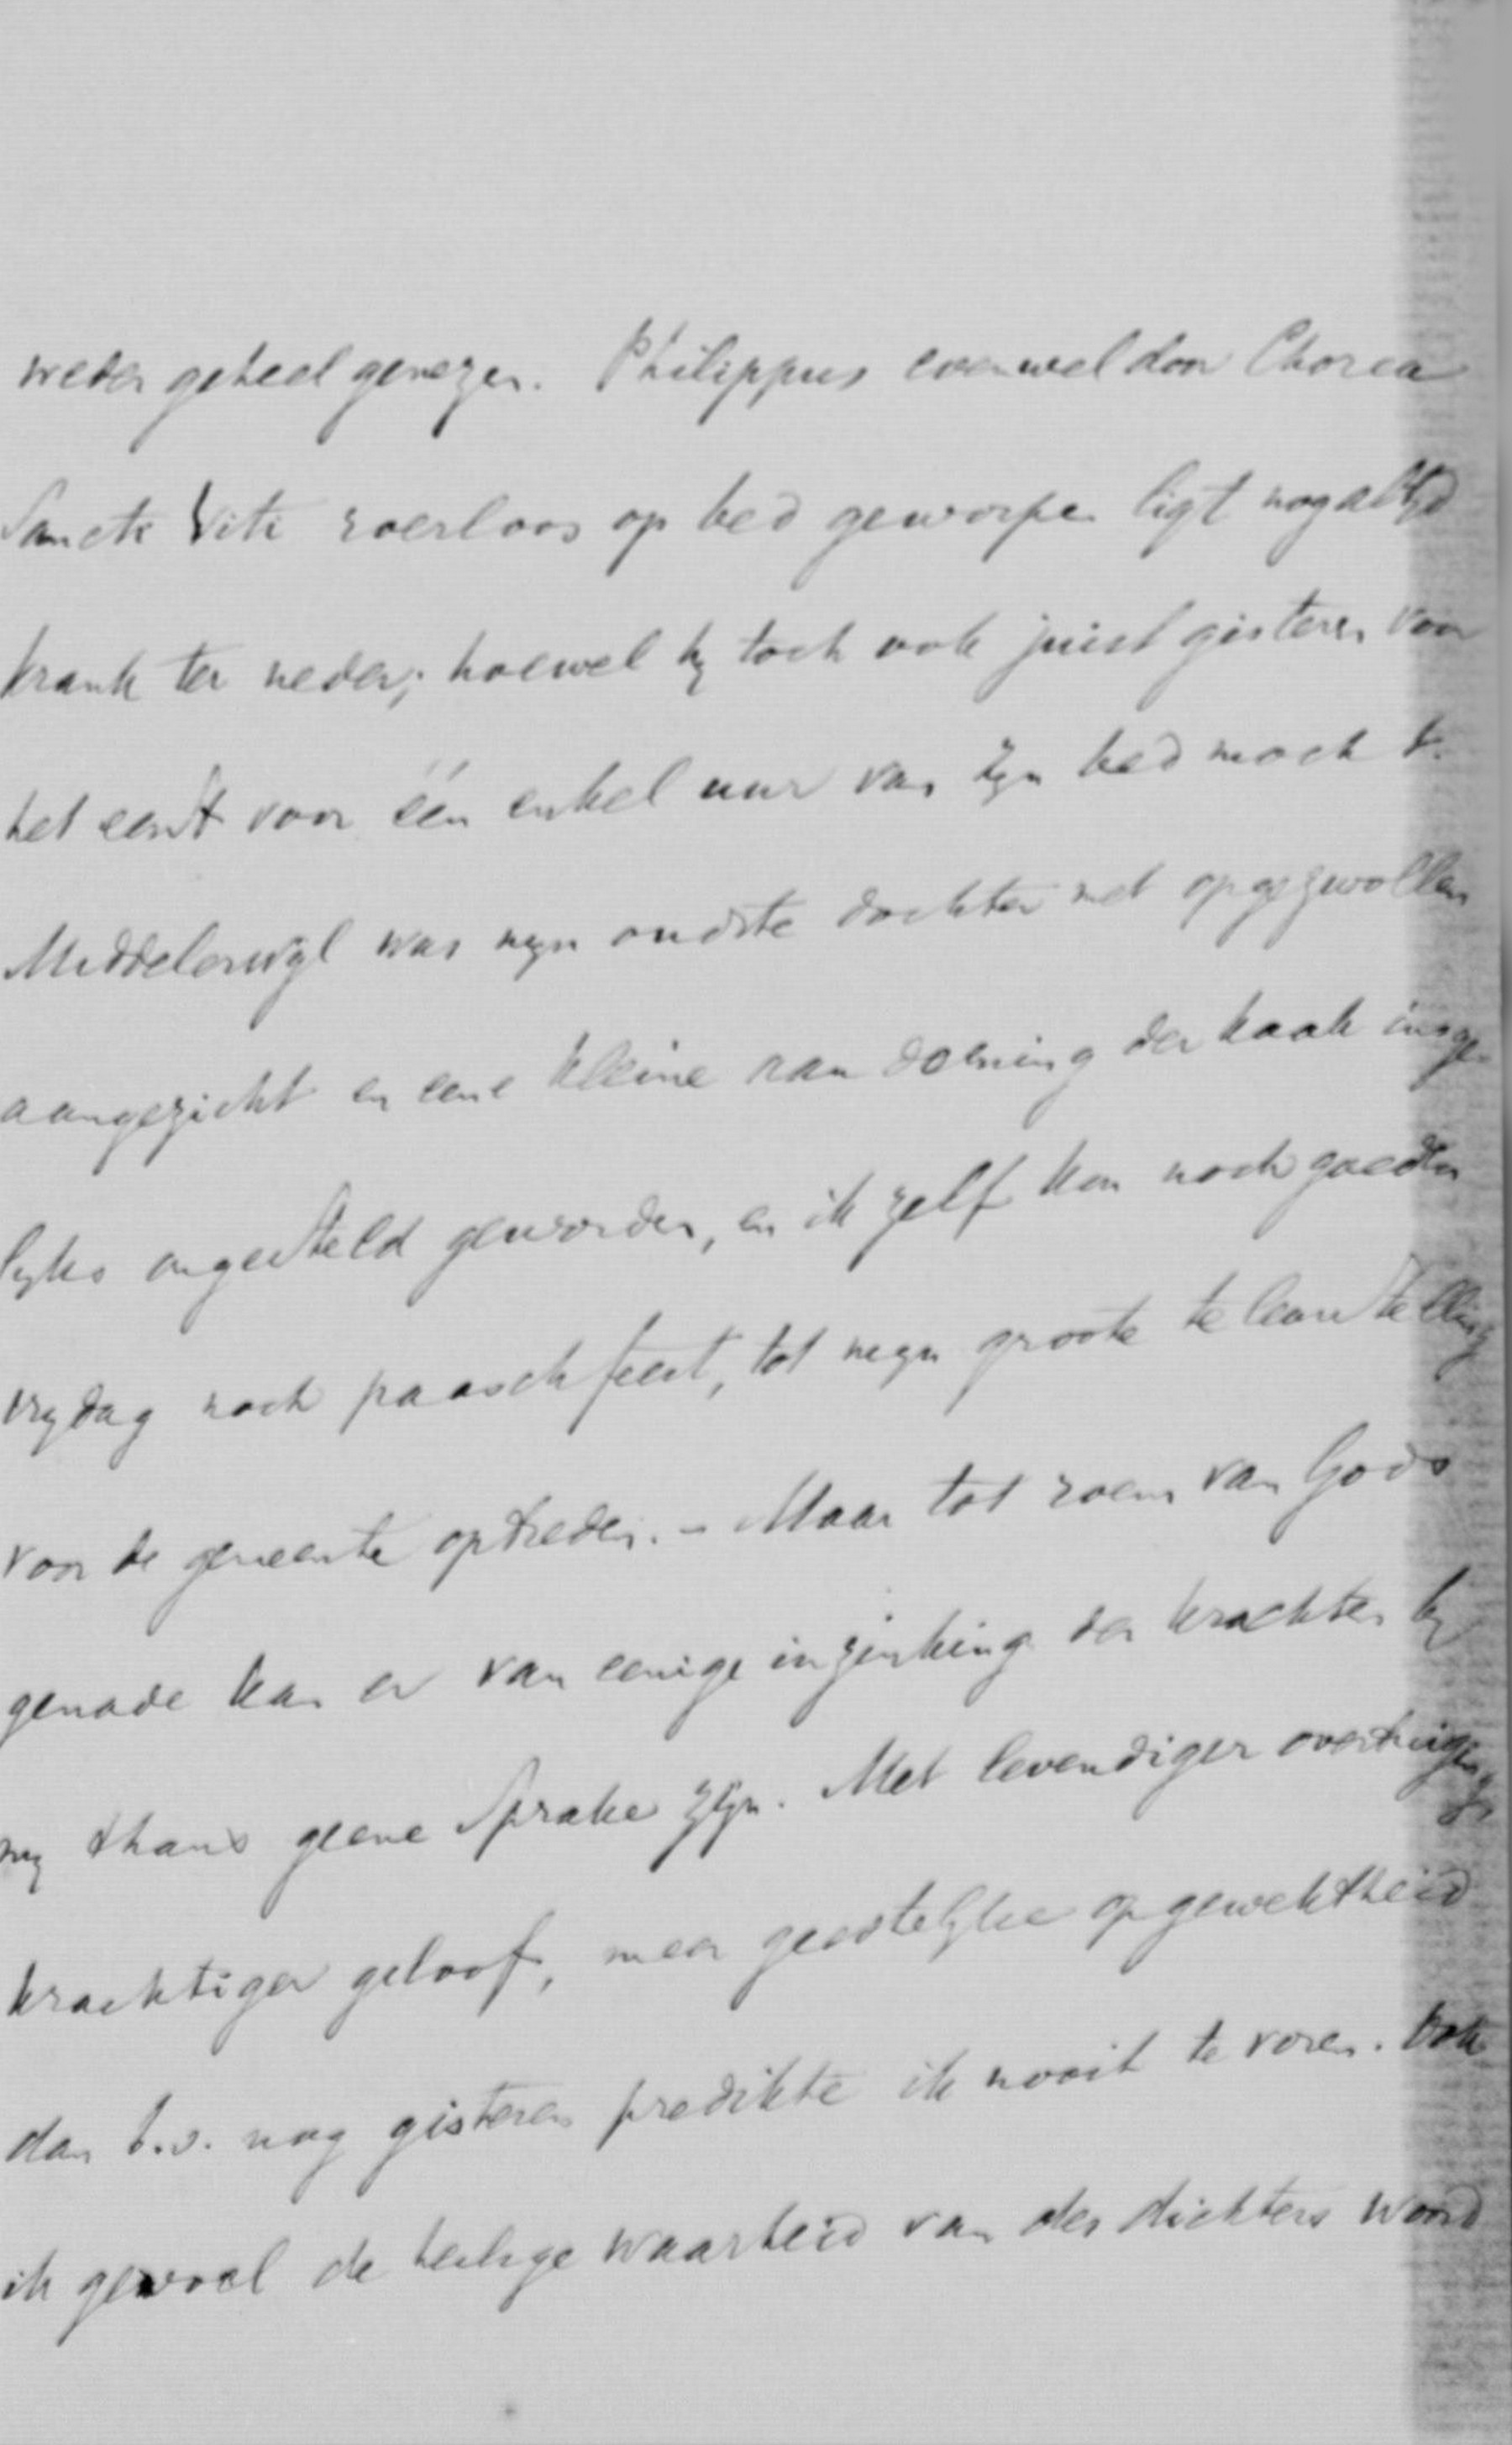 weder geheel genezen. Philippus evenwel door Chorea
Sancti Viti roerloos op bed geworpen ligt nog altyd
krank ter neder; hoewel hy toch ook juist gisteren voor
het eerst voor één enkel uur van zyn bed mocht.
Middelerwyl was myn oudste dochter met opgezwollen
aangezicht en eene kleine aandoening der kaak insge-
lyks ongesteld geworden, en ik zelf kon noch goeden
vrydag noch paaschfeest, tot myn groote teleurstelling
voor de gemeente optreden. - Maar tot roem van Gods
genade kan er van eenige inzinking der krachten by
my thans geene sprake zyn. Met levendiger overtuiging,
krachtiger geloof, meer geestelyke opgewektheid
dan b.v. nog gisteren predikte ik nooit te voren. Ook
ik gevoel de heilige waarheid van des dichters woord